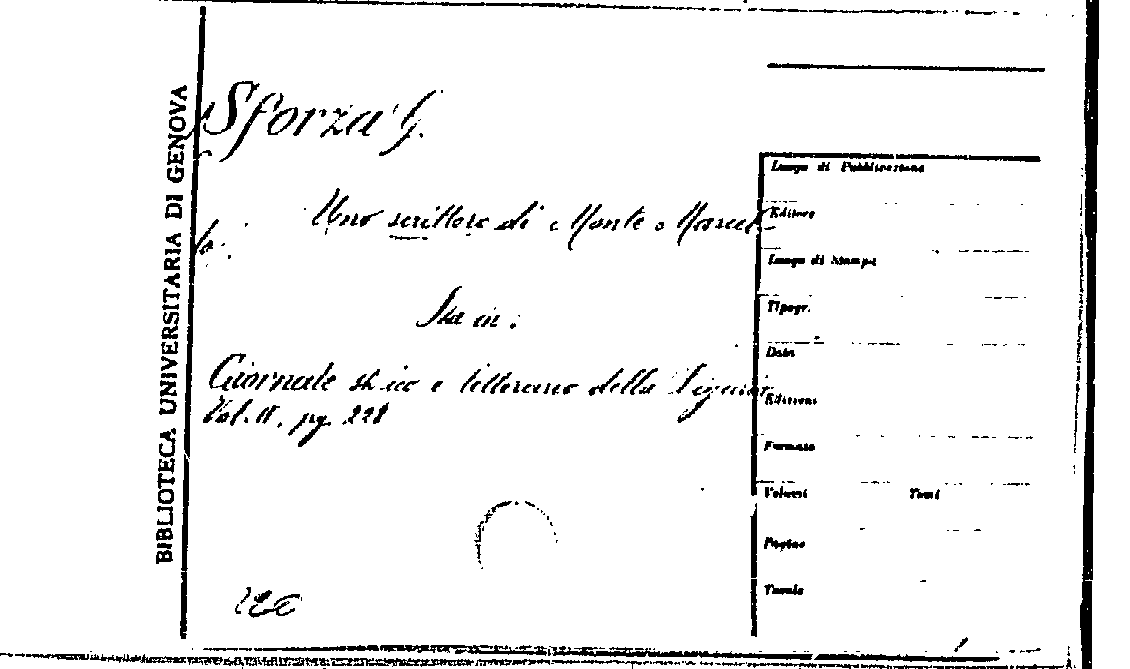 BIBLIOTECA UNIVERSITARIA DI GENOVA
Sforza G.
Uno scrittore di Monte Marcel-
lo.
Sta in:
Giornale storico e letterario della Liguria
Vol. II, pg. 228
Luogo di Pubblicazione
Editore
Luogo di Stampa
Tipogr.
Data
Edizioni
Formato
Volumi Tomi
Pagine
Tavole